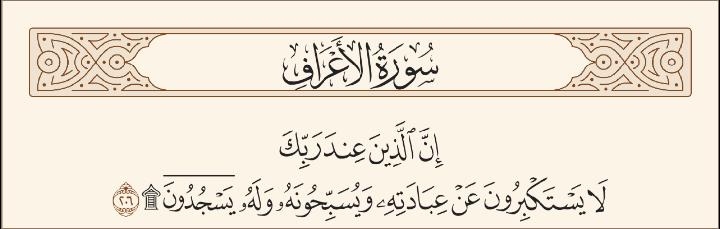 سُورَةُ الأَعْرَافِ
إِنَّ ٱلَّذِينَ عِندَ رَبِّكَ
لَا يَسْتَكْبِرُونَ عَنْ عِبَادَتِهِۦ وَيُسَبِّحُونَهُۥ وَلَهُۥ يَسْجُدُونَ ۩ ٢٠٦